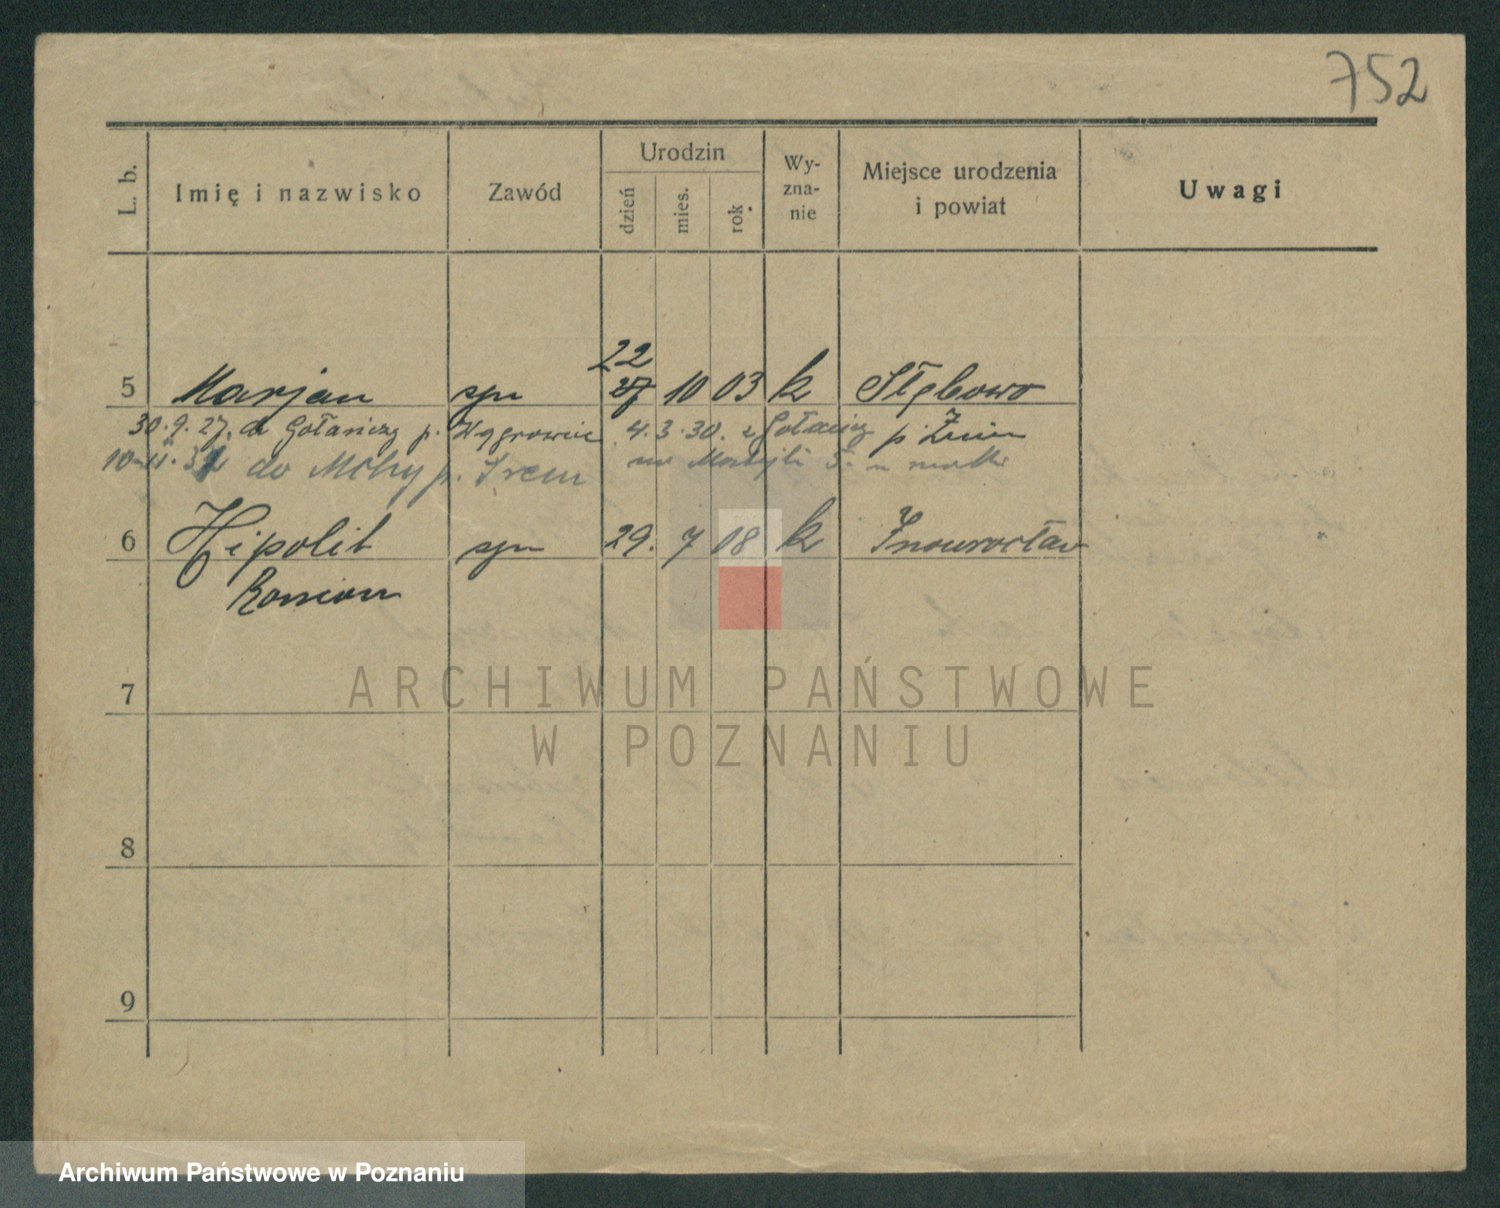 752
L. b. Imię i nazwisko Zawód Urodzin dzień mies. rok Wy-zna-nie Miejsce urodzenia i powiat Uwagi
22
5 Marjan syn 27 10 03 k Słębowo
30.9.27. do Gołańczy p. Wągrowiec 4.3.30. z Gołańczy p. Żnin
10.11.31 do Mchy p. Śrem na 5. u matki
6 Hipolit syn 29. 7 08 k Inowrocław
Roman
7
8
9
ARCHIWUM PAŃSTWOWE
W POZNANIU
Archiwum Państwowe w Poznaniu